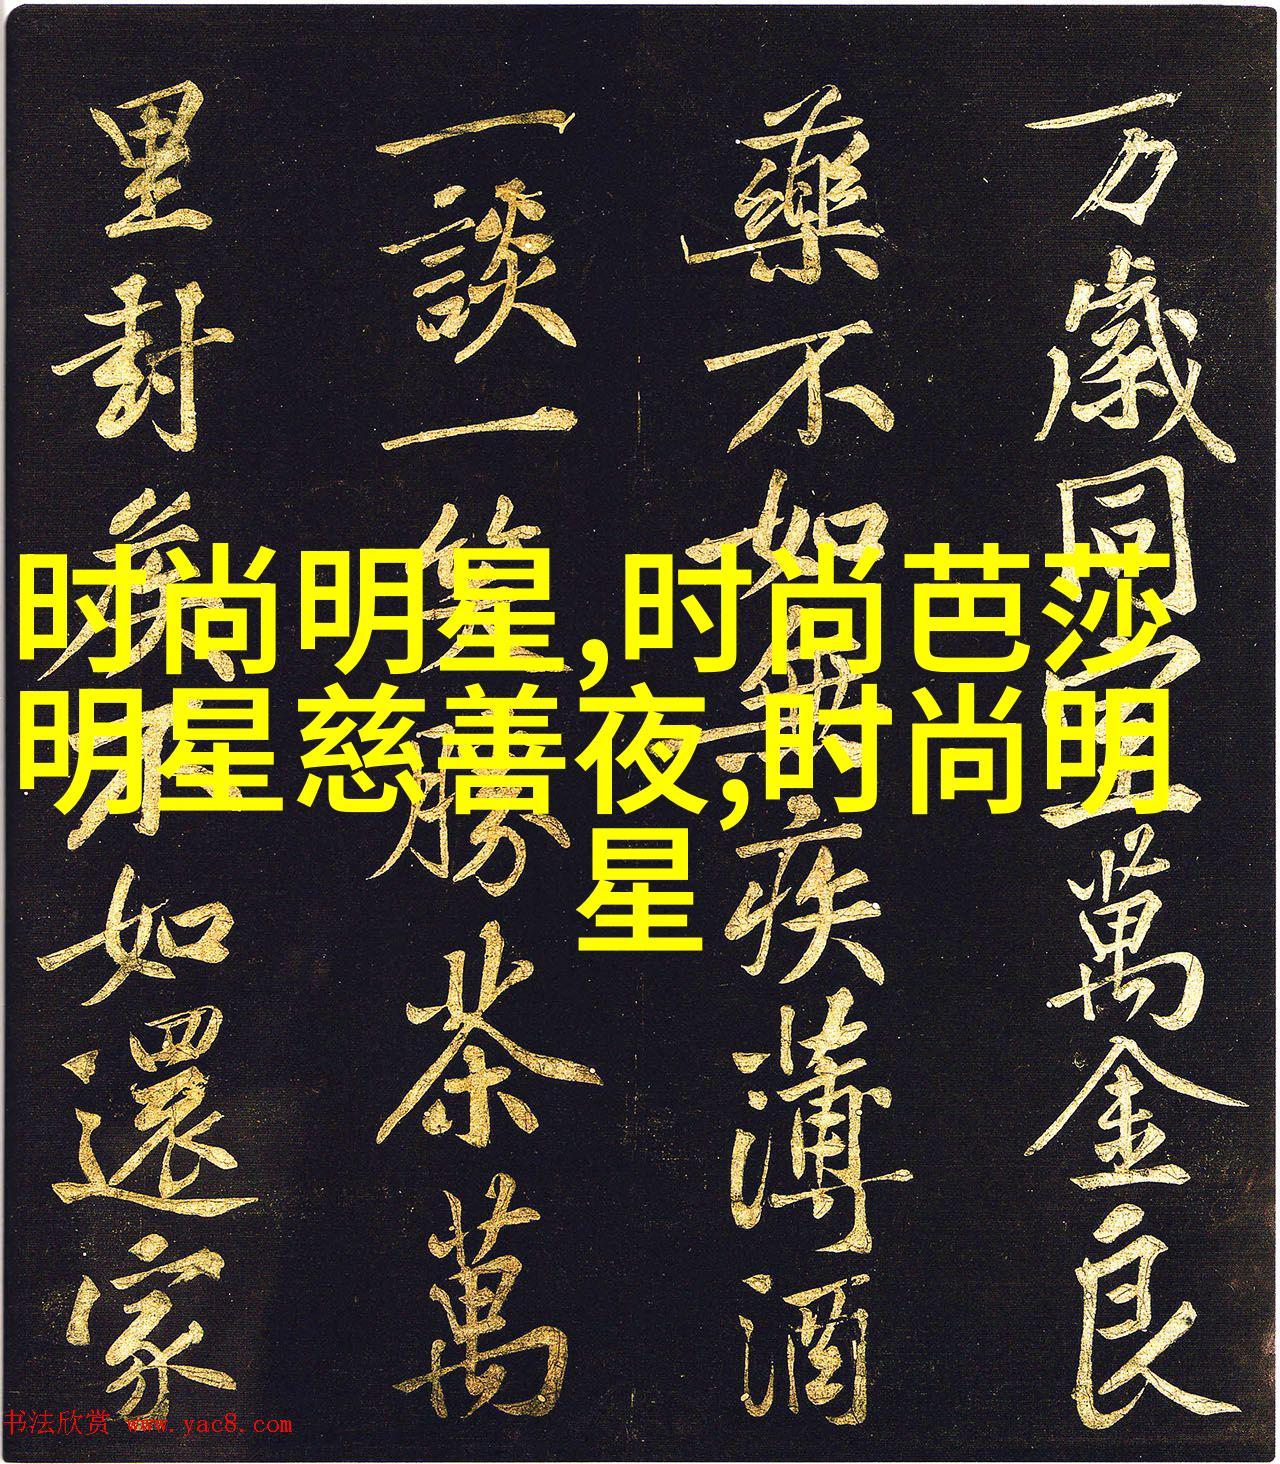 万歲同丘萬金良
藥不如無疾薄酒
一談一笑勝茶萬
里封矦不如還家
时尚明星,时尚芭莎
明星慈善夜,时尚明
星
书法欣赏 www.yac8.com